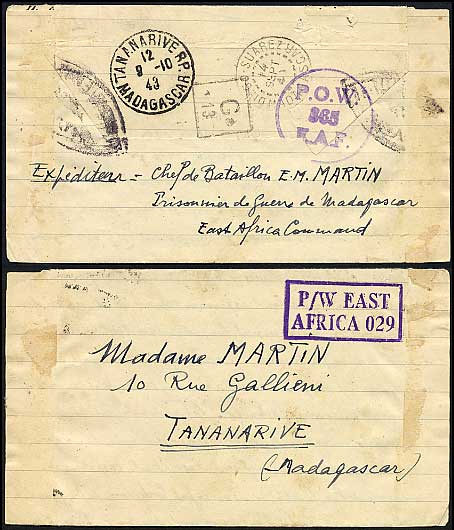 TANANARIVE R.P.
12
9-10
43
MADAGASCAR
C
13
SUAREZ
14
SEPT
P.O.W.
365
E.A.F.
Expéditeur = Chef de Bataillon E.M. MARTIN
Prisonnier de Guerre de Madagascar
East Africa Command
P/W EAST
AFRICA 029
Madame MARTIN
10 Rue Gallieni
TANANARIVE
(Madagascar)